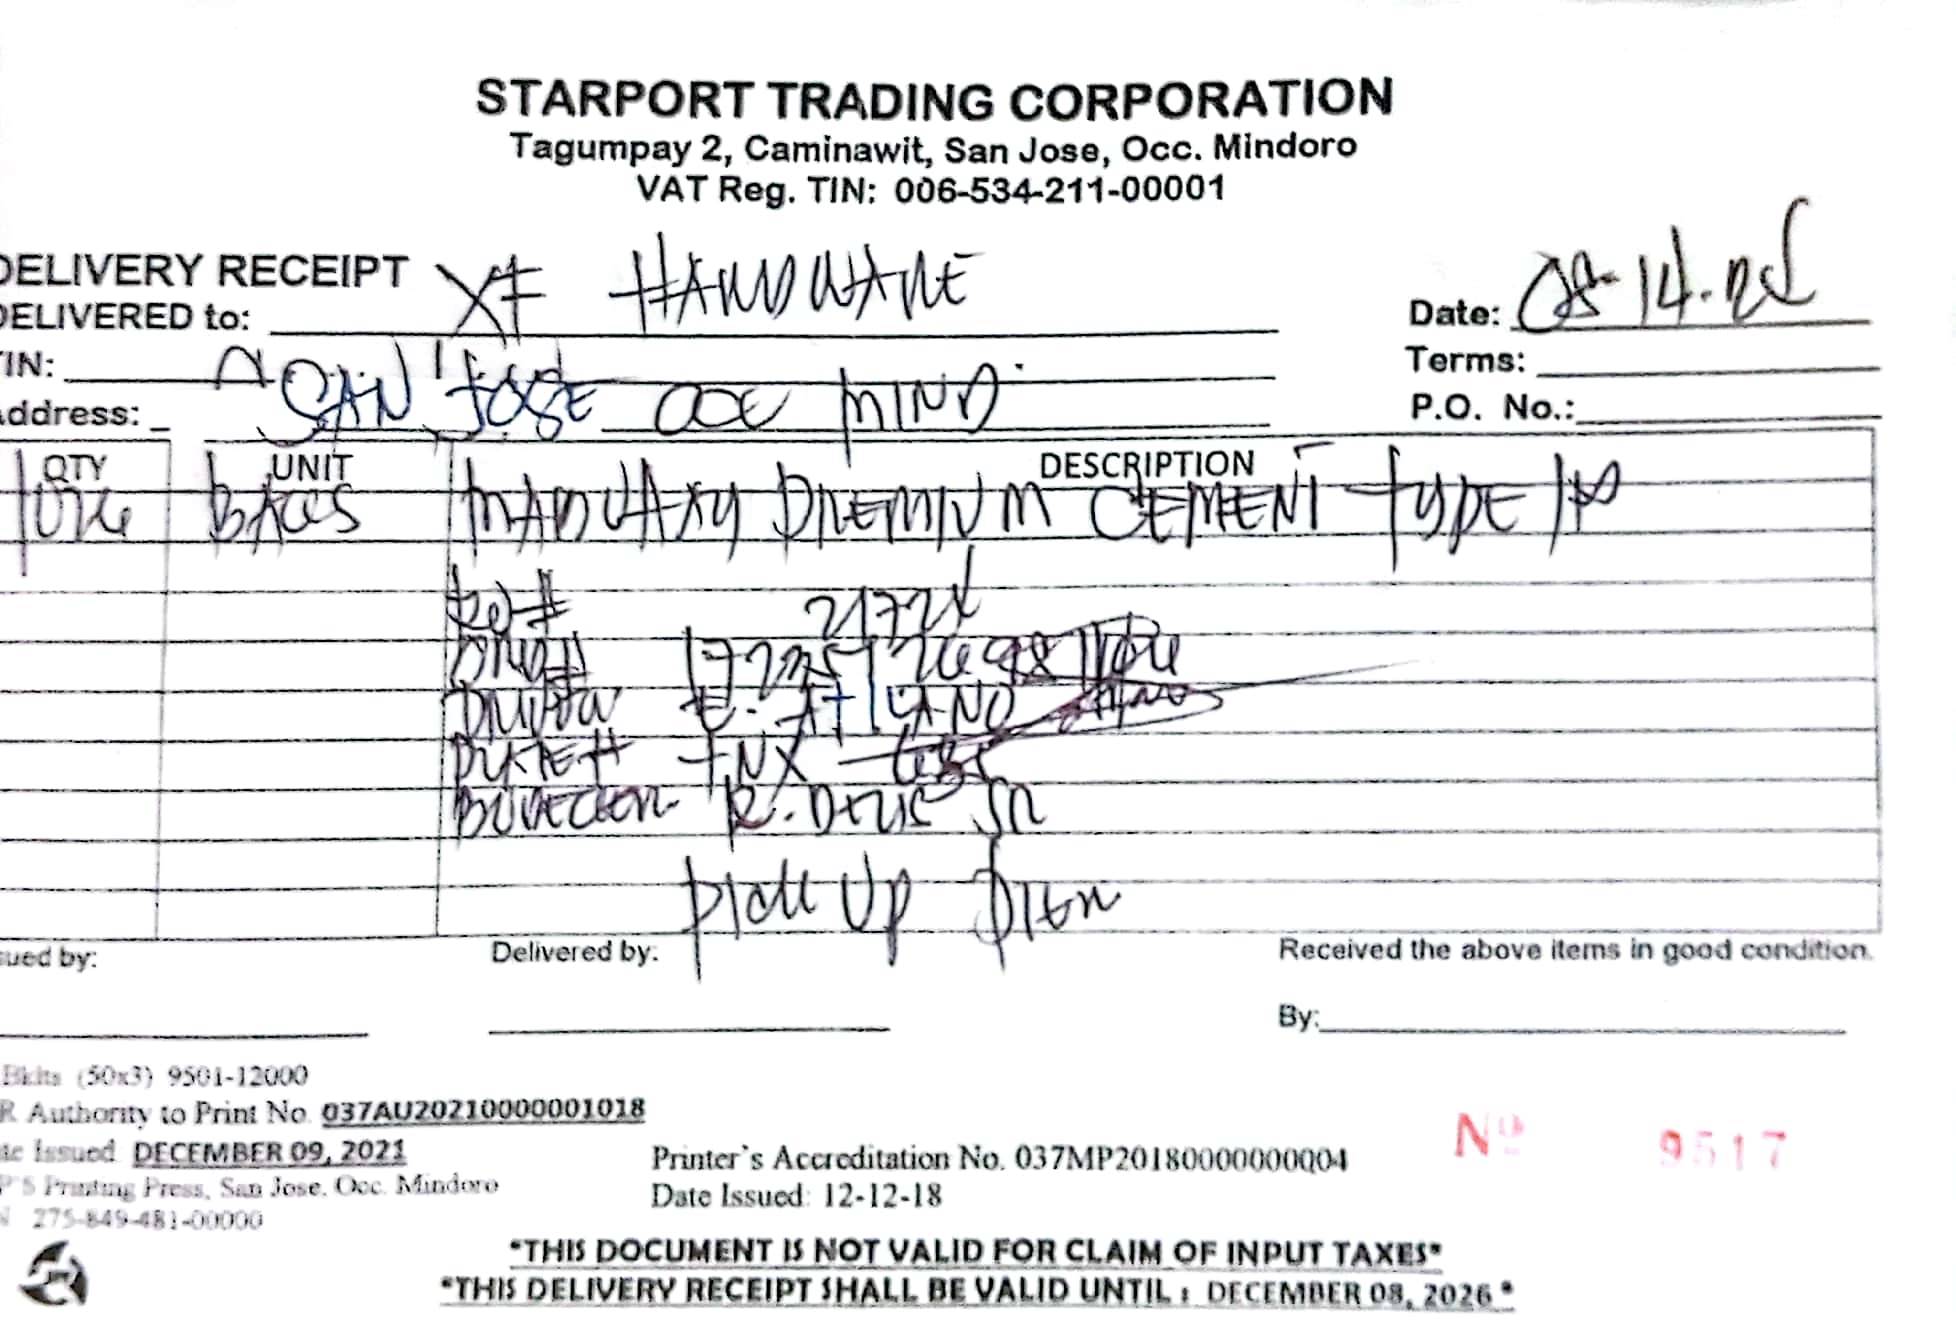 STARPORT TRADING CORPORATION
Tagumpay 2, Caminawit, San Jose, Occ. Mindoro
VAT Reg. TIN: 006-534-211-00001
DELIVERY RECEIPT
DELIVERED to: XF HARDWARE
Date: 08-14-25
TIN:
Terms:
Address: SAN JOSE OCC MIND.
P.O. No.:
QTY UNIT DESCRIPTION
BAGS PREMIUM CEMENT TYPE 1P
21725
E.
R. SR
PICK UP PIER
ued by: Delivered by: Received the above items in good condition.
By:
Bklts (50x3) 9501-12000
R Authority to Print No. 037AU20210000001018
te Issued DECEMBER 09, 2021
P'S Printing Press, San Jose, Occ. Mindoro
N 275-849-481-00000
Printer's Accreditation No. 037MP20180000000004
Date Issued: 12-12-18
Nº 9517
*THIS DOCUMENT IS NOT VALID FOR CLAIM OF INPUT TAXES*
*THIS DELIVERY RECEIPT SHALL BE VALID UNTIL : DECEMBER 08, 2026 *